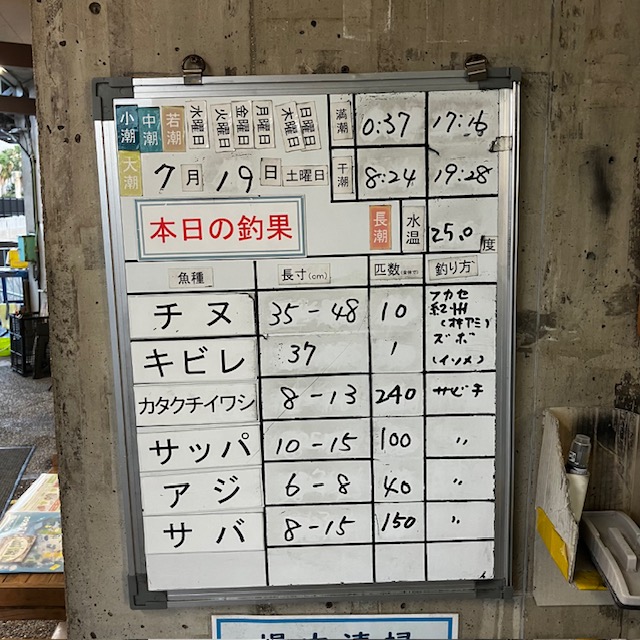 小潮 中潮 若潮 水曜日 火曜日 金曜日 月曜日 木曜日 日曜日 満潮 0:37 17:16
大潮 7月19日 土曜日 干潮 8:24 19:28
本日の釣果 長潮 水温 25.0度
魚種 長寸(cm) 匹数 釣り方
チヌ 35-48 10 フカセ
紀州
(オキアミ)
ズボ
キビレ 37 1 (イソメ)
カタクチイワシ 8-13 240 サビキ
サッパ 10-15 100 〃
アジ 6-8 40 〃
サバ 8-15 150 〃